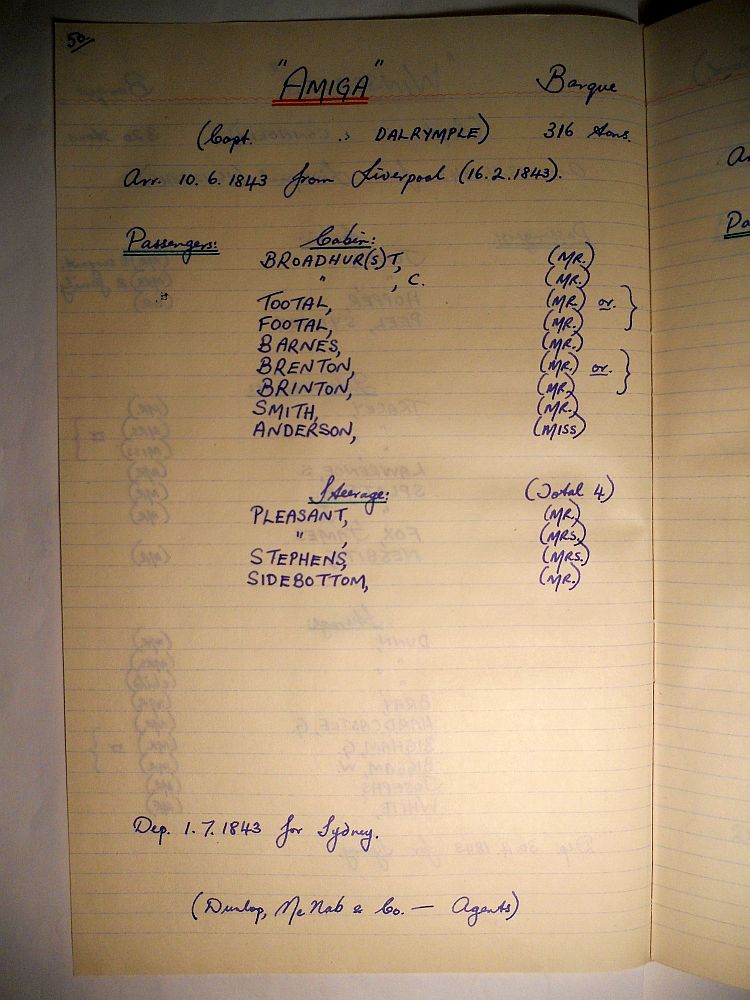 50.
"AMIGA" Barque
(Capt. DALRYMPLE) 316 tons.
Arr. 10.6.1843 from Liverpool (16.2.1843).
Passengers: Cabin:
BROADHUR(S)T, (MR.)
" , C. (MR.)
TOOTAL, (MR.) or. }
FOOTAL, (MR.)
BARNES, (MR.)
BRENTON, (MR.) or. }
BRINTON, (MR.)
SMITH, (MR.)
ANDERSON, (MISS)
Steerage: (Total 4)
PLEASANT, (MR.)
" , (MRS.)
STEPHENS, (MRS.)
SIDEBOTTOM, (MR.)
Dep. 1.7.1843 for Sydney.
(Dunlop, McNab & Co. — Agents)